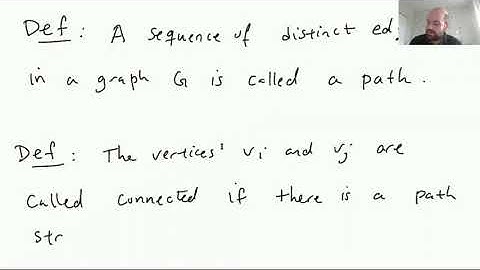 Def : A sequence of distinct ed
in a graph G is called a path .
Def : The vertices' vi and vj are
called connected if there is a path
str